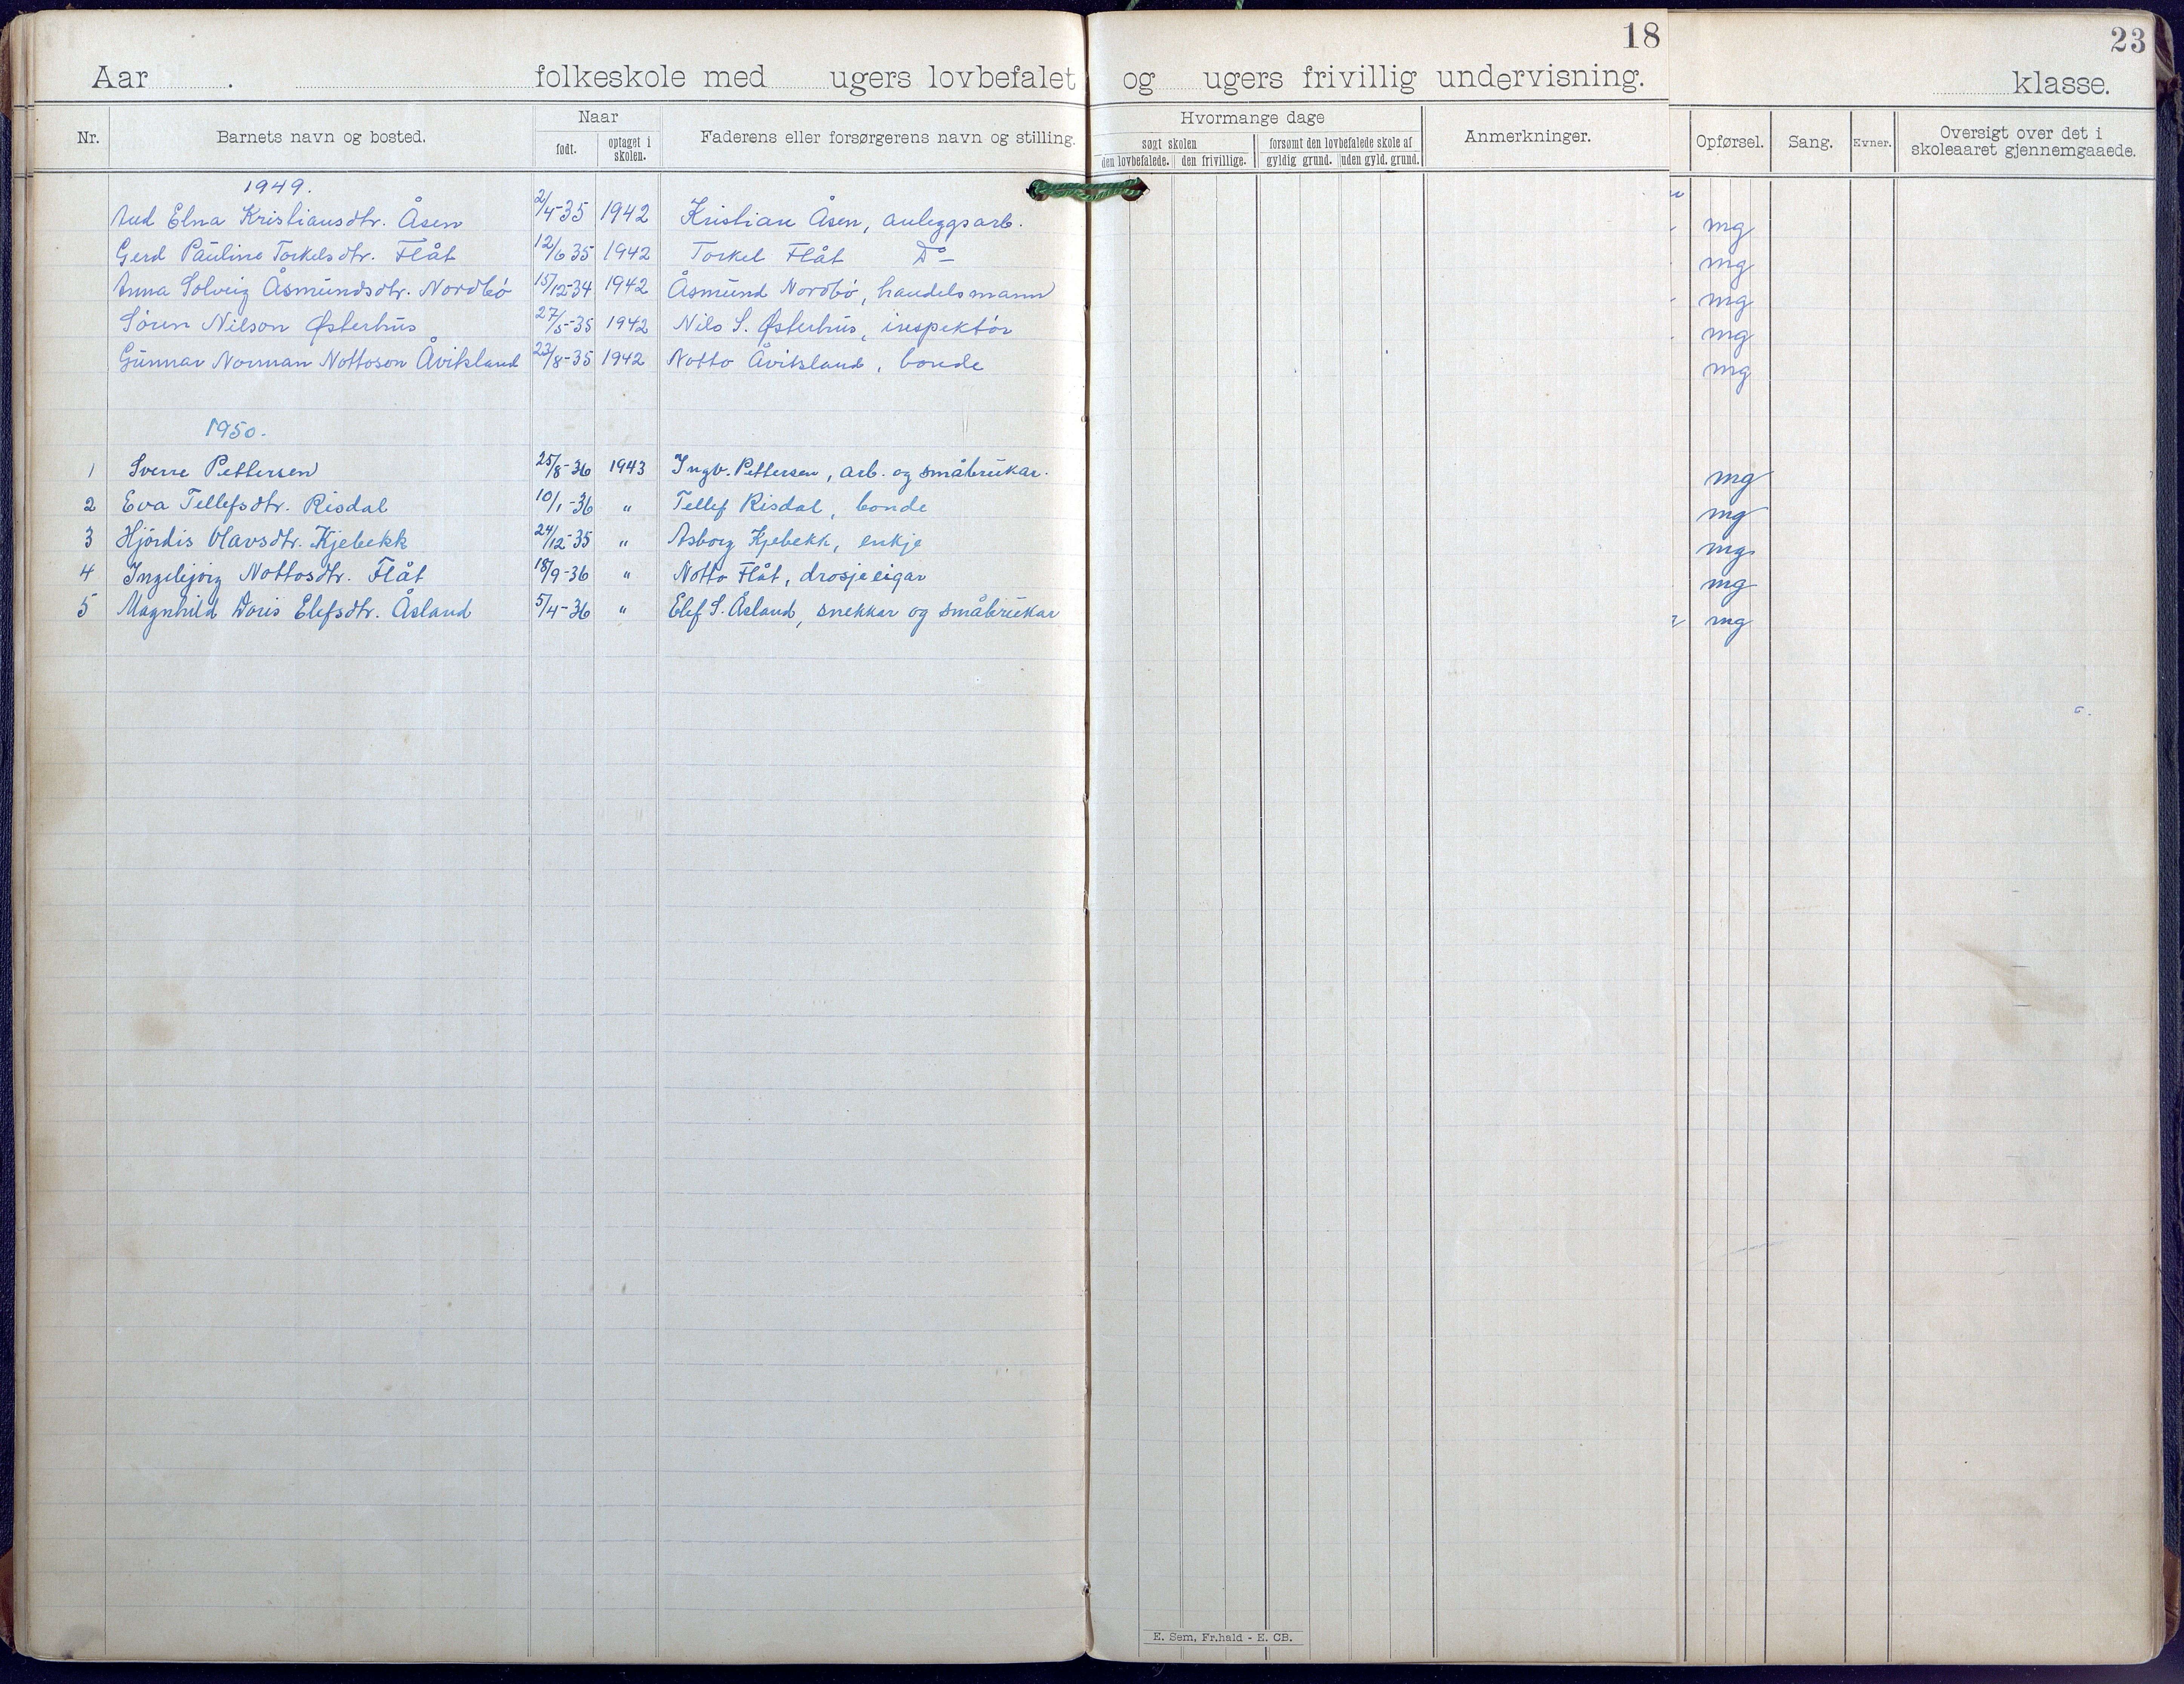 18
23
Aar . folkeskole med ugers lovbefalet og ugers frivillig undervisning. klasse.
Nr. Barnets navn og bosted. Naar født. optaget i skolen. Faderens eller forsørgerens navn og stilling. Hvormange dage søgt skolen den lovbefalede. den frivillige. forsømt den lovbefalede skole af gyldig grund. uden gyld. grund. Anmerkninger. Opførsel. Sang. Evner. Oversigt over det i skoleaaret gjennemgaaede.
1949.
Aud Elna Kristiansdtr. Åsen 2/4-35 1942 Kristian Åsen, anleggsarb. mg
Gerd Pauline Torkelsdtr. Flåt 12/6 35 1942 Torkel Flåt Do mg
Anna Solveig Åsmundsdtr. Nordbó 15/12-34 1942 Åsmund Nordbó, handelsmann mg
Sóren Nilson Østerhus 27/5-35 1942 Nils S. Østerhus, inspektór mg
Gunnar Norman Nottoson Åvitsland 23/8-35 1942 Notto Åvitsland, bonde mg
1950.
1 Sverre Pettersen 25/8-36 1943 Ingv. Pettersen, arb. og småbrukar. mg
2 Eva Tellefsdtr. Risdal 10/1-36 " Tellef Risdal, bonde mg
3 Hjórdis Olavsdtr. Kjebekk 24/12-35 " Asborg Kjebekk, enkje mg
4 Ingebjørg Nottosdtr. Flåt 18/9-36 " Notto Flåt, drosjeeigar mg
5 Magnhild Doris Elefsdtr. Åsland 5/4-36 " Elef S. Åsland, snekkar og småbrukar mg
E. Sem, Fr.hald - E. CB.